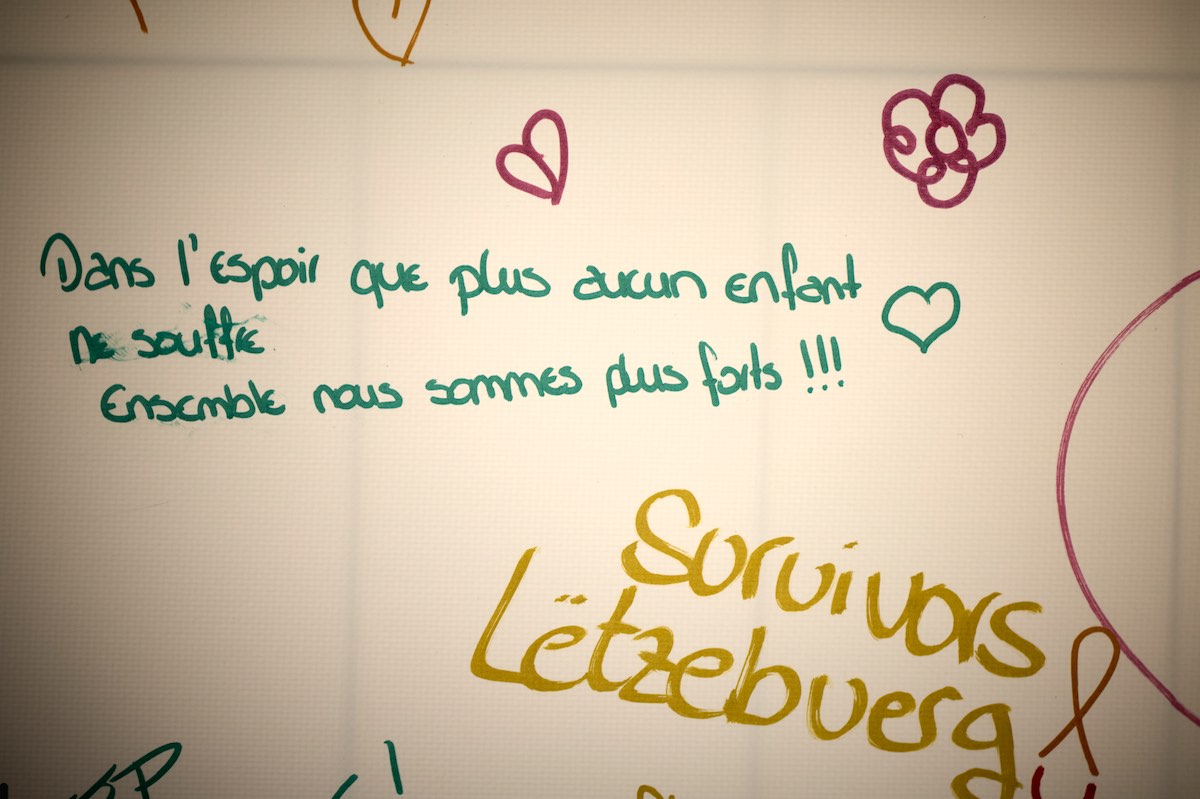 Dans l'espoir que plus aucun enfant
ne souffre
Ensemble nous sommes plus forts !!!
Survivors
Lëtzebuerg